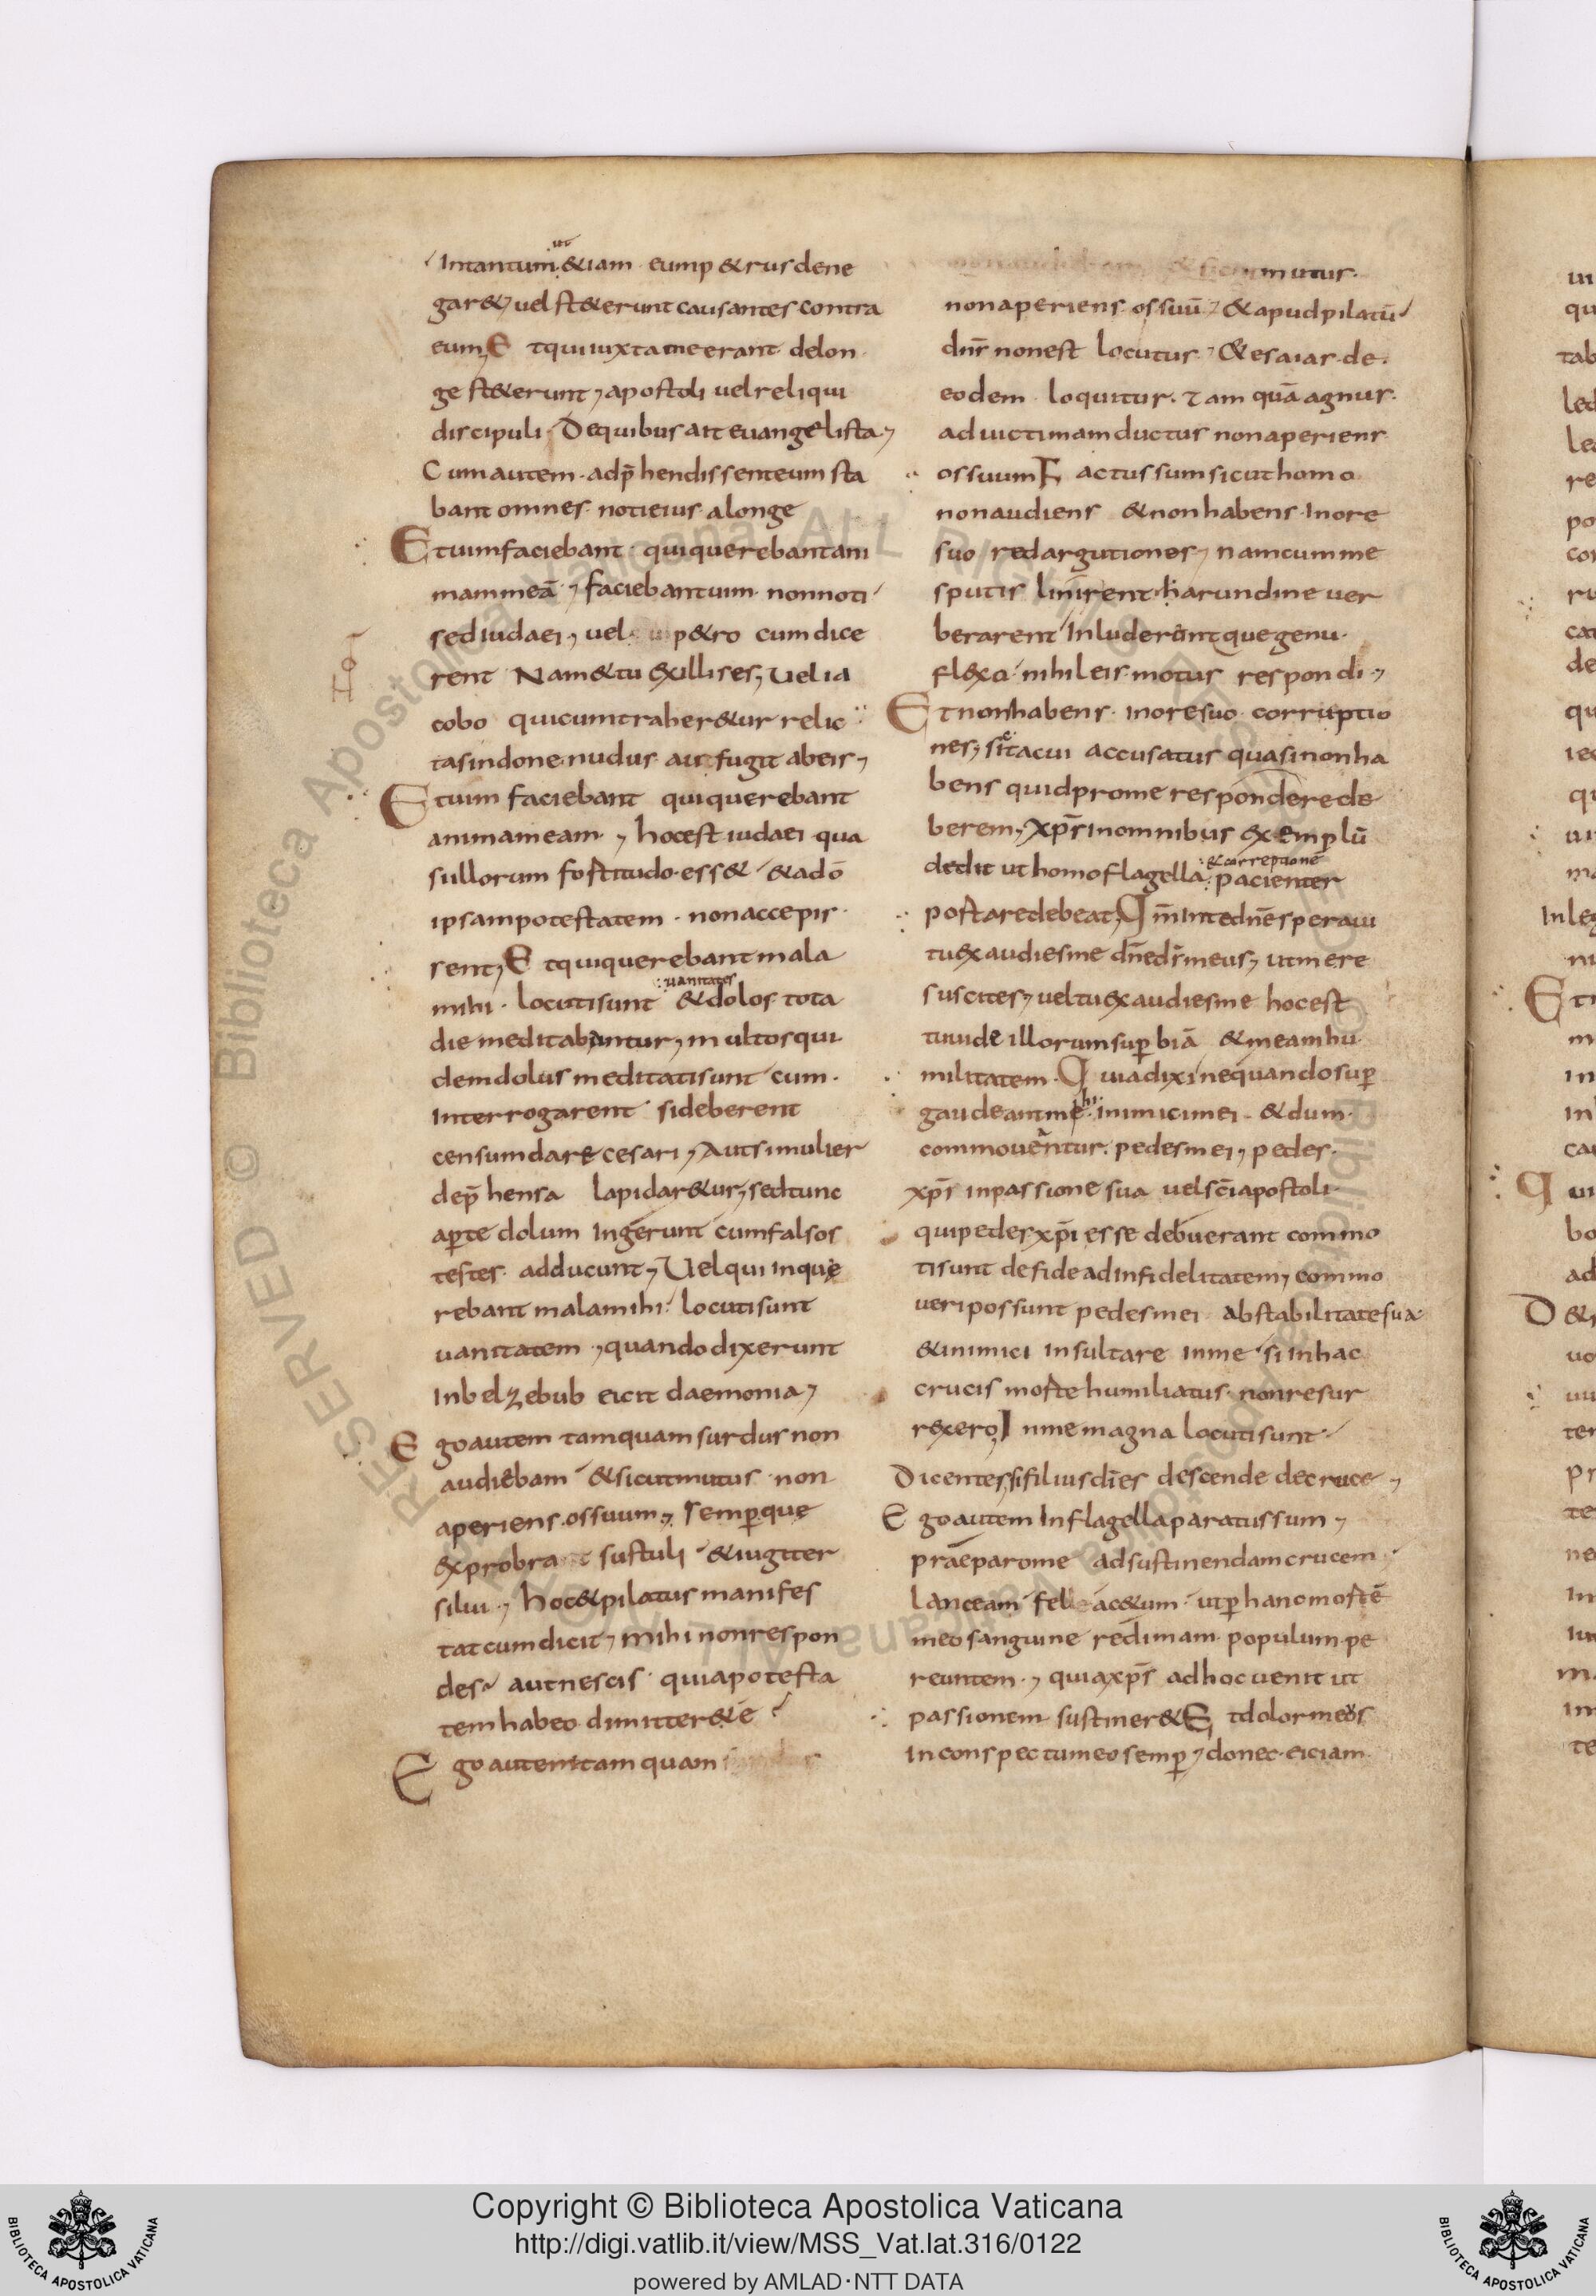 ut
Intantum &iam eump&rus dene
gar&, uel st&erunt causantes contra
eum, Et qui iuxta me erant de lon
ge st&erunt, apostoli uel reliqui
discipuli. De quibus ait euangelista,
Cum autem adp̄hendissent eum sta
bant omnes noti eius a longe
Et uim faciebant qui querebant ani
mam meā, faciebant uim non noti
sed iudaei, uel p&ro cum dice
rent Nam & tu ex illis es, Uel ia
cobo qui cum traher&ur relic
ta sindone nudus aufugit ab eis,
Et uim faciebant qui querebant
animam eam, hoc est iudaei qua
si illorum fortitudo ess& & ad ō
ipsam potestatem non accepis
sent, Et qui querebant mala
uanitates
mihi locuti sunt & dolos tota
die meditabuntur, multos qui
dem dolus meditati sunt cum
interrogarent si deberent
censum dare cesari, Aut si mulier
dep̄hensa lapidar&ur, sed tunc
aꝑte dolum ingerunt cum falsos
testes adducunt, Uel qui inque
rebant mala mihi locuti sunt
uanitatem, quando dixerunt
In belzebub eicit daemonia,
Ego autem tamquam surdus non
audiebam & sicut mutus non
aperiens os suum, semꝑque
exprobra sustuli & iugiter
silui, hoc & pilatus manifes
tat cum dicit, mihi non respon
des aut nescis quia potesta
tem habeo dimitter& ē
Ego autem tam quam
mutus
non aperiens os suū, & apud pilatū
dn̄s non est locutus, & esaias de
eodem loquitur. Tam quā agnus
ad uictimam ductus non aperiens
os suum Factus sum sicut homo
non audiens & non habens in ore
suo redargutiones, nam cum me
sputis linirent harundine uer
berarent Inluderentque genu
flexo nihil eis motus respondi,
Et non habens in ore suo corruptio
nes, sic tacui accusatus quasi non ha
bens quid pro me respondere de
berem, xp̄s in omnibus exemplū
& correptionē
dedit ut homo flagella pacienter
portare debeat, Qm̄ in te dn̄e speraui
tu exaudies me dn̄e ds̄ meus, ut me re
suscites, uel tu exaudies me hoc est
tu uide illorum suꝑbiā & meam hu
militatem. Quia dixi nequando suꝑ
hi
gaudeant me inimici mei & dum
commouentur pedes mei, pedes
xp̄s in passione sua uel sc̄i apostoli
qui pedes xp̄i esse debuerant commo
ti sunt de fide ad infidelitatem, commo
ueri possunt pedes mei ab stabilitate sua
& inimici insultare in me si in hac
crucis morte humiliatus non resur
rexero, In me magna locuti sunt
Dicentes, si filius dī es descende de cruce,
Ego autem In flagella paratus sum,
praeparo me ad sustinendam crucem
lanceam fel ac&um ut ꝑ hanc mortē
meo sanguine redimam populum pe
reuntem, quia xp̄s ad hoc uenit ut
passionem sustiner& Et dolor meus
In conspectu meo semꝑ, donec eiciam
Copyright © Biblioteca Apostolica Vaticana
http://digi.vatlib.it/view/MSS_Vat.lat.316/0122
powered by AMLAD·NTT DATA